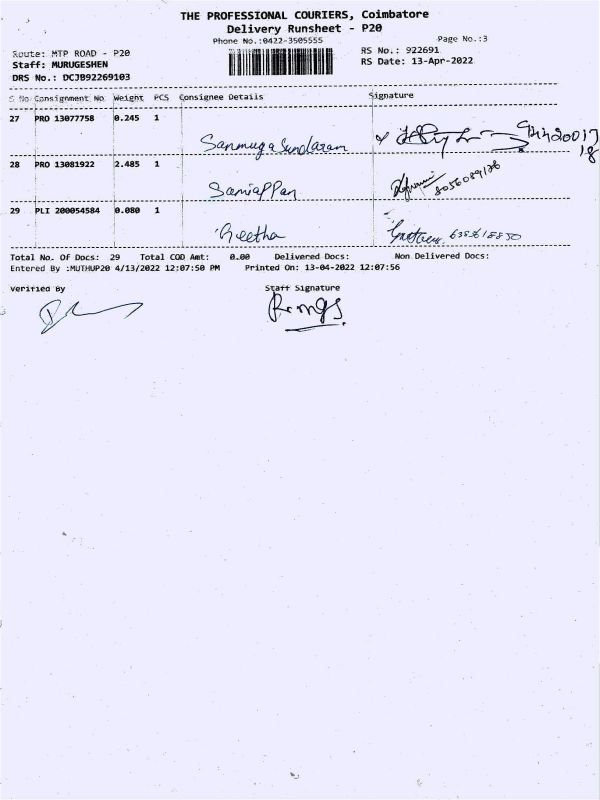 THE PROFESSIONAL COURIERS, Coimbatore
Delivery Runsheet - P20
Phone No.:0422-3505555
Page No.:3
Route: MTP ROAD - P20
RS No.: 922691
Staff: MURUGESHEN
RS Date: 13-Apr-2022
DRS No.: DCJB92269103
S No Consignment No Weight PCS Consignee Details Signature
27 PRO 13077758 0.245 1
Sanmuga Sundaram
28 PRO 13081922 2.485 1
Samiappan 8056089178
29 PLI 200054584 0.080 1
Geetha
Total No. Of Docs: 29 Total COD Amt: 0.00 Delivered Docs: Non Delivered Docs:
Entered By :MUTHUP20 4/13/2022 12:07:50 PM Printed On: 13-04-2022 12:07:56
Verified By Staff Signature